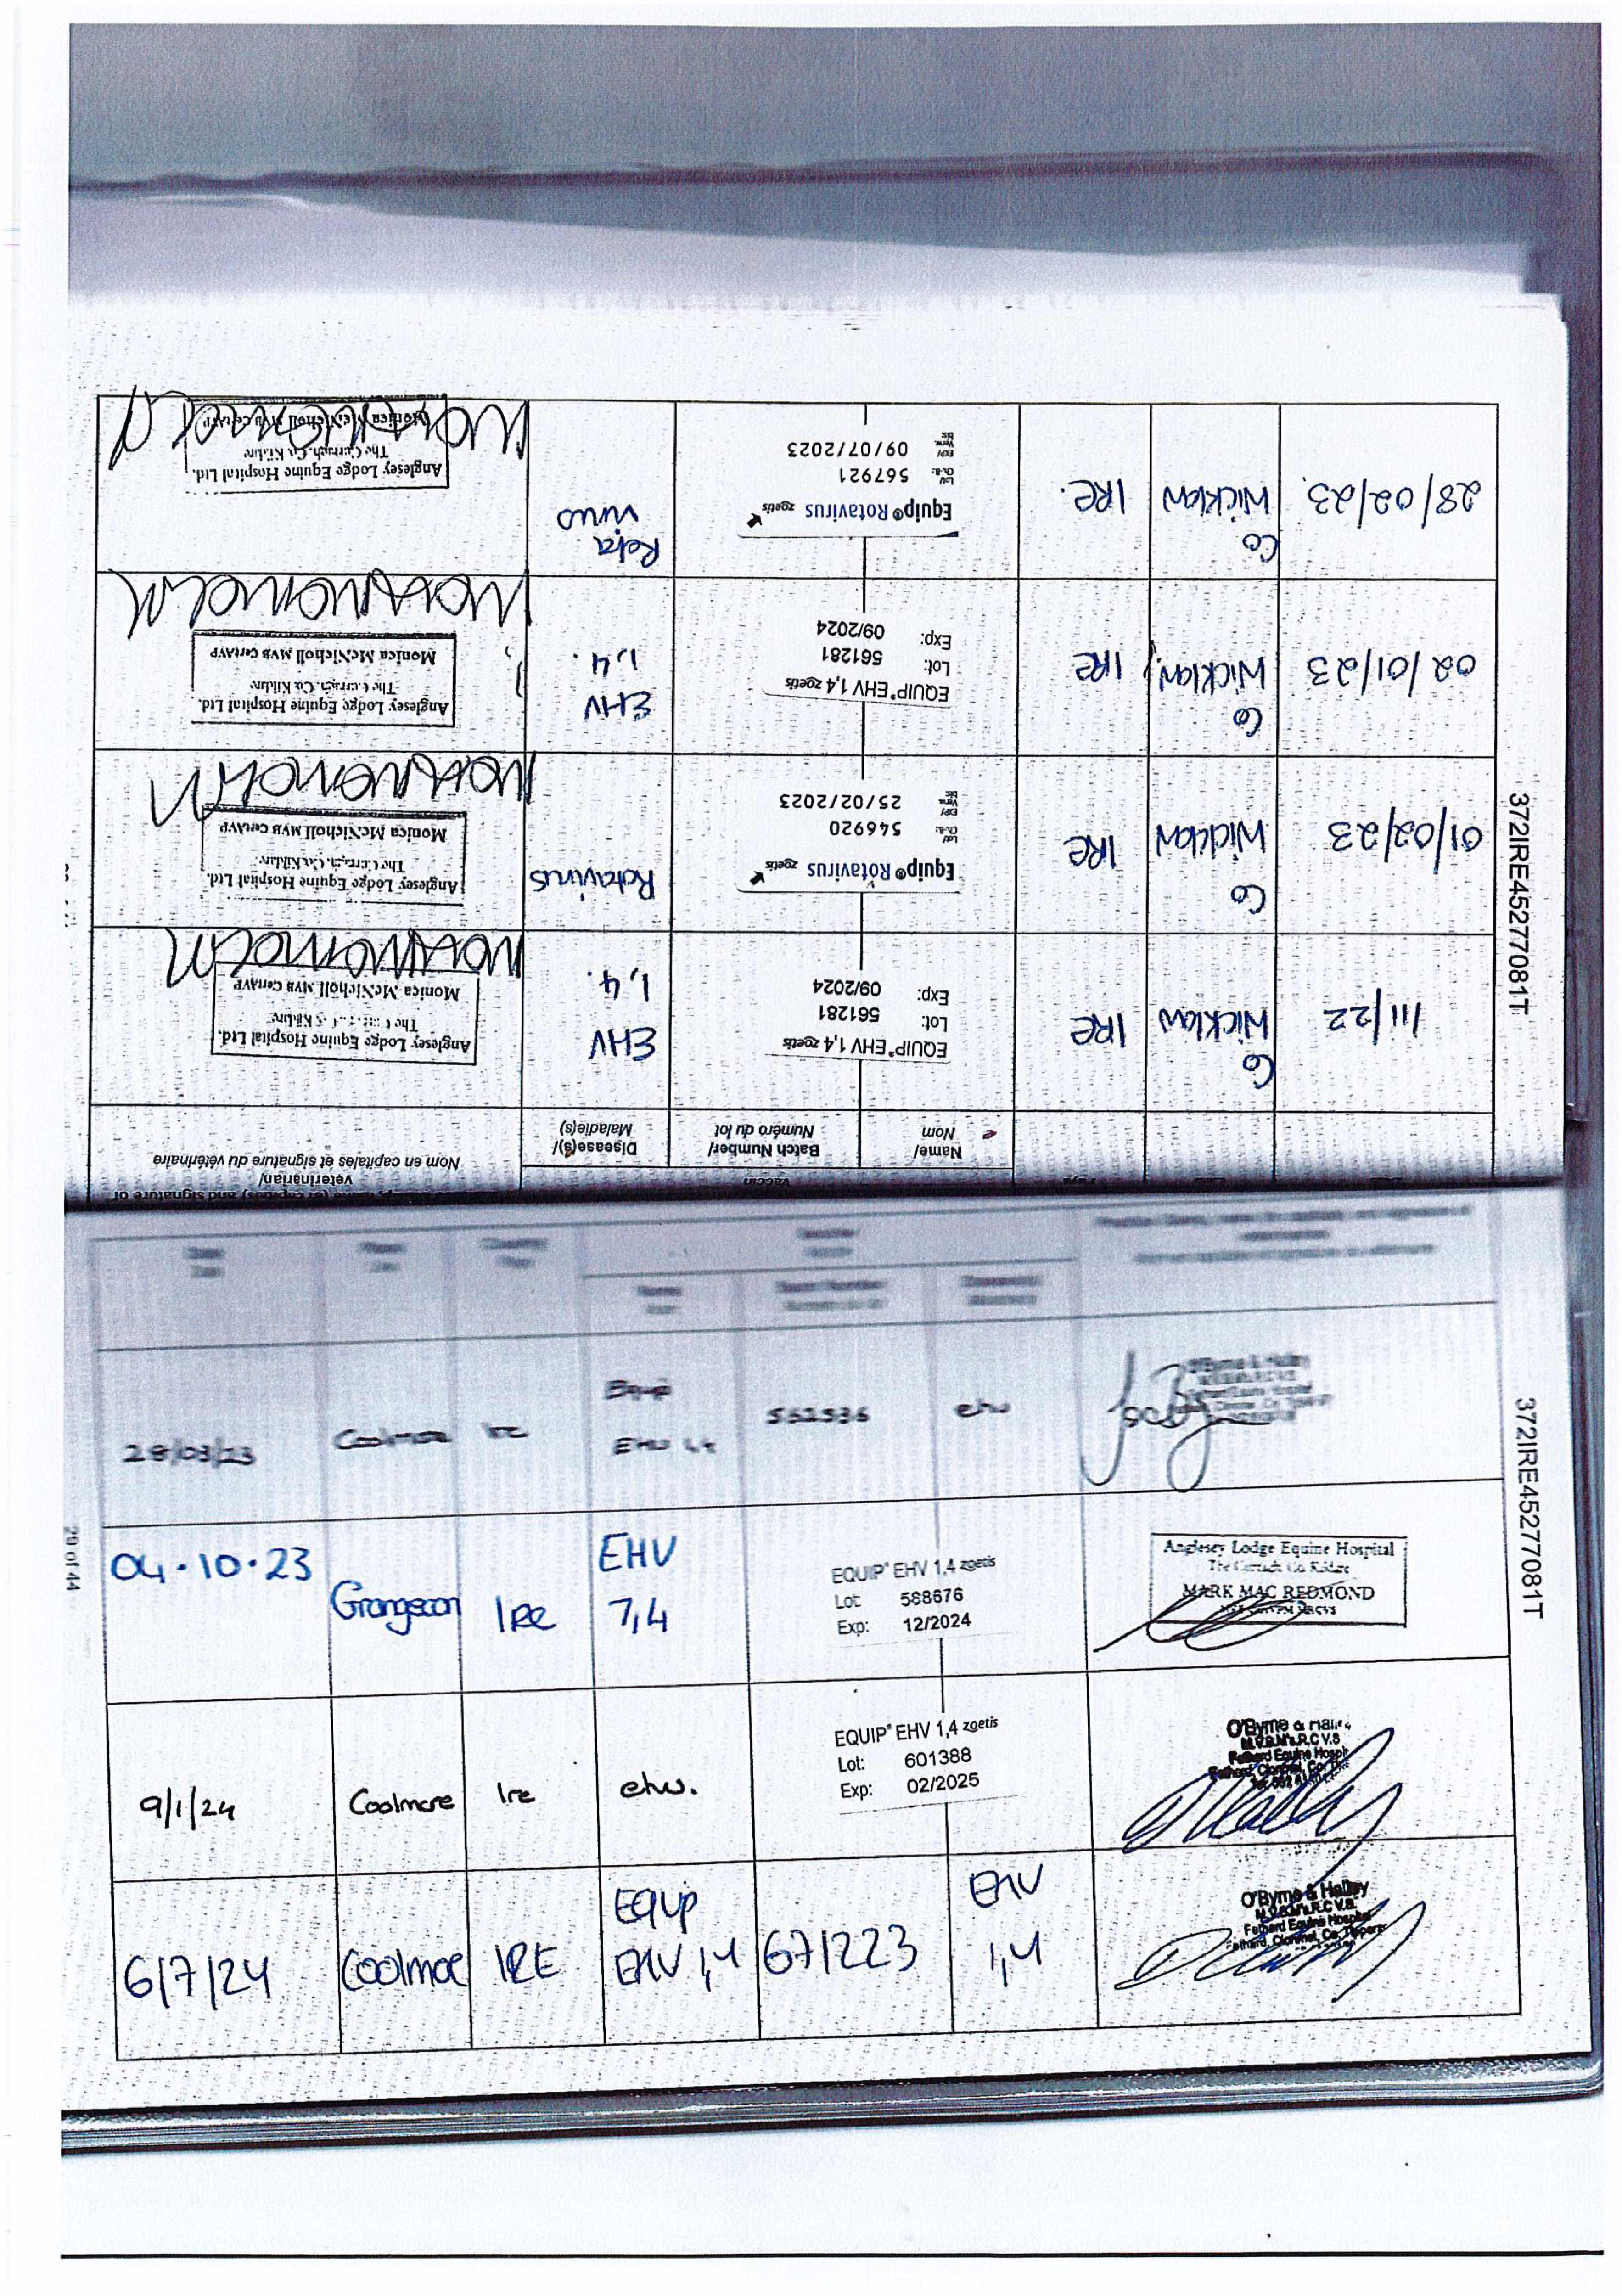 Nom en capitales et signature du vétérinaire
veterinarian/
Name/
Nom
Batch Number/
Numéro du lot
Disease(s)/
Maladie(s)
1/11/22
Co
Wicklow
IRE
EQUIP® EHV 1,4 zoetis
Lot: 561281
Exp: 09/2024
EHV
1,4.
Anglesey Lodge Equine Hospital Ltd.
Monica McNicholl MVB CertAVP
01/02/23
Co
Wicklow
IRE
Equip® Rotavirus zoetis
546920
25/02/2023
Rotavirus
Anglesey Lodge Equine Hospital Ltd.
The Curragh, Co. Kildare
Monica McNicholl MVB CertAVP
02/01/23
Co
Wicklow
IRE
EQUIP® EHV 1,4 zoetis
Lot: 561281
Exp: 09/2024
EHV
1,4.
Anglesey Lodge Equine Hospital Ltd.
The Curragh, Co. Kildare
Monica McNicholl MVB CertAVP
28/02/23.
Co
Wicklow
IRE.
Equip® Rotavirus zoetis
567921
09/07/2023
Rota
virus
Anglesey Lodge Equine Hospital Ltd.
The Curragh, Co. Kildare
Monica McNicholl MVB CertAVP
372IRE45277081T
28/03/23
Coolmore
Ire
Equip
EHV 1,4
552536
ehv
O'Byrne & Halley
04·10·23
Grangecon
Ire
EHV
1,4
EQUIP® EHV 1,4 zoetis
Lot: 588676
Exp: 12/2024
Anglesey Lodge Equine Hospital
The Curragh Co. Kildare
MARK MAC REDMOND
9/1/24
Coolmore
Ire
ehv.
EQUIP® EHV 1,4 zoetis
Lot: 601388
Exp: 02/2025
O'Byrne & Halley
Fethard Equine Hospital
6/7/24
Coolmore
IRE
Equip
EHV 1,4
671223
EHV
1,4
O'Byrne & Halley
Fethard Equine Hospital
Fethard, Clonmel, Co. Tipperary
372IRE45277081T
29 of 44